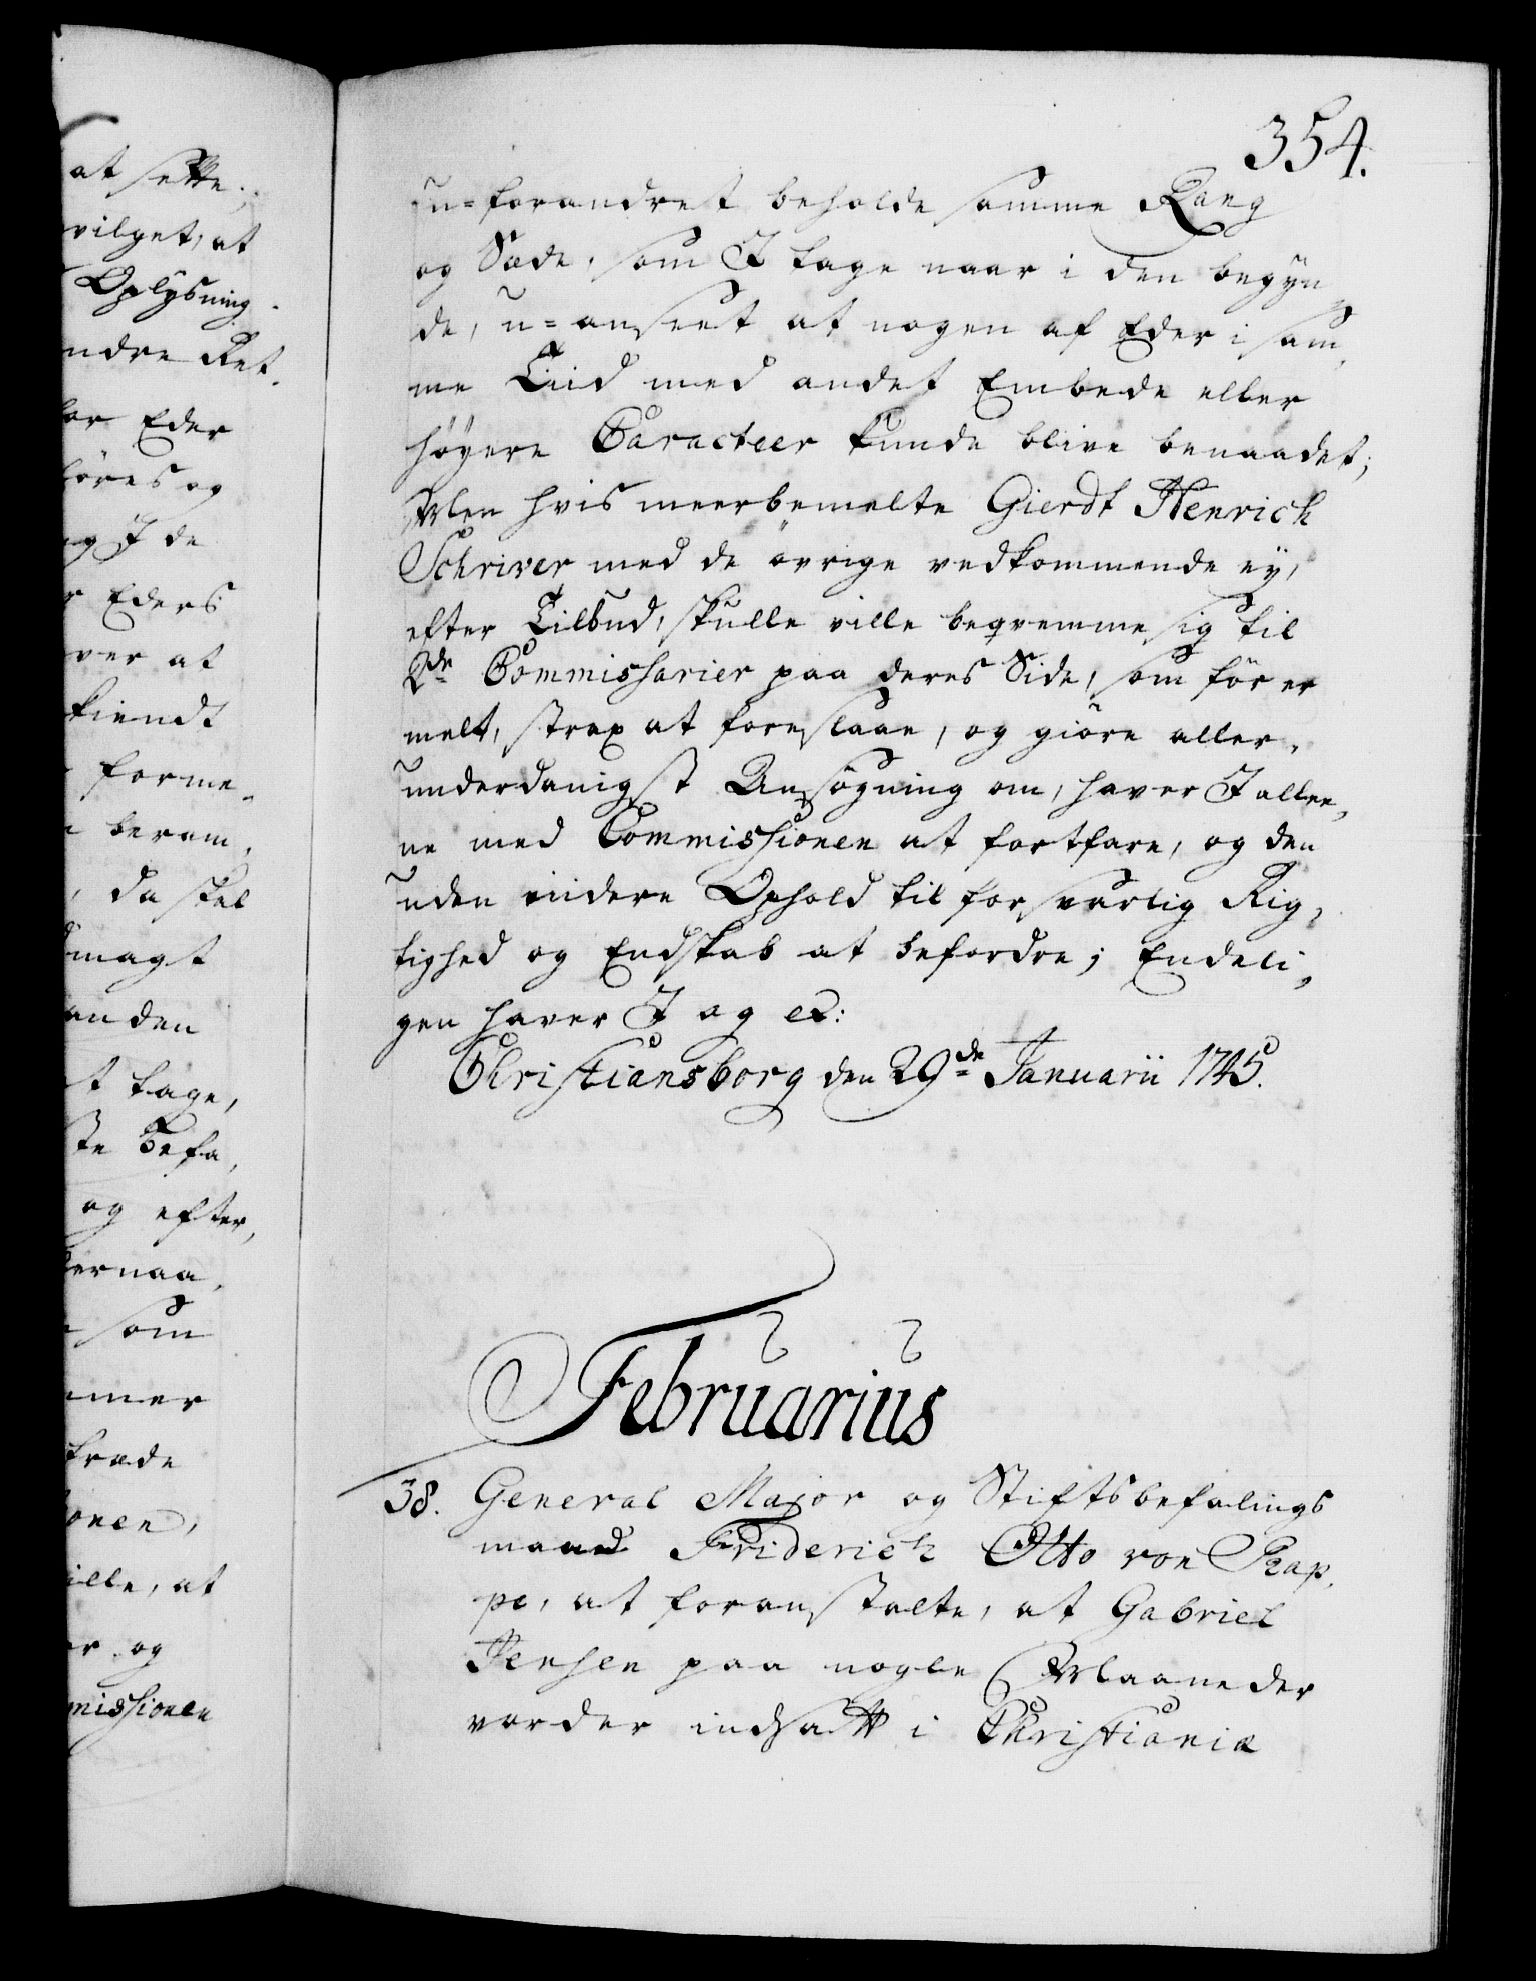 at sette.,
vilget, at
Oplysning
ndre Ret,
for Eder
føres og
og I de
r Eders
ver at
kiendt
forme„
beram„
, da skal
magt
an den
t tage,
ste Befa„
og efter„
dernaa„
som
mmer
træde
onen,
ville, at
er og
missionen
354.
u-forandret beholde samme Rang
og Sæde, som I tage naar i den begyn„
de, u-anseet at nogen af Eder i sam„
me Tiid med andet Embede eller
høyere Caracteer kunde blive benaadet;
Men hvis meerbemelte Gierdt Henrich
Schriver med de øvrige vedkommende ey,
efter Tilbud, skulle ville beqvemme sig til
2de Commissarier paa deres Side, som før er
melt, strax at foreslaae, og giøre aller„
underdanigst Ansøgning om, haver I allee„
ne med Commissionen at fortfare, og den
uden videre Ophold til forsvarlig Rig„
tighed og Endskab at befordre; Endeli„
gen haver I og et:
Christiansborg den 29de Januarii 1745.
Februarius
38. General Major og Stiftsbefalings
mand Friderich Otto von Rap„
pe, at foranstalte, at Gabriel
Jensen paa nogle Maaneder
vorder indsatt i Christianiæ